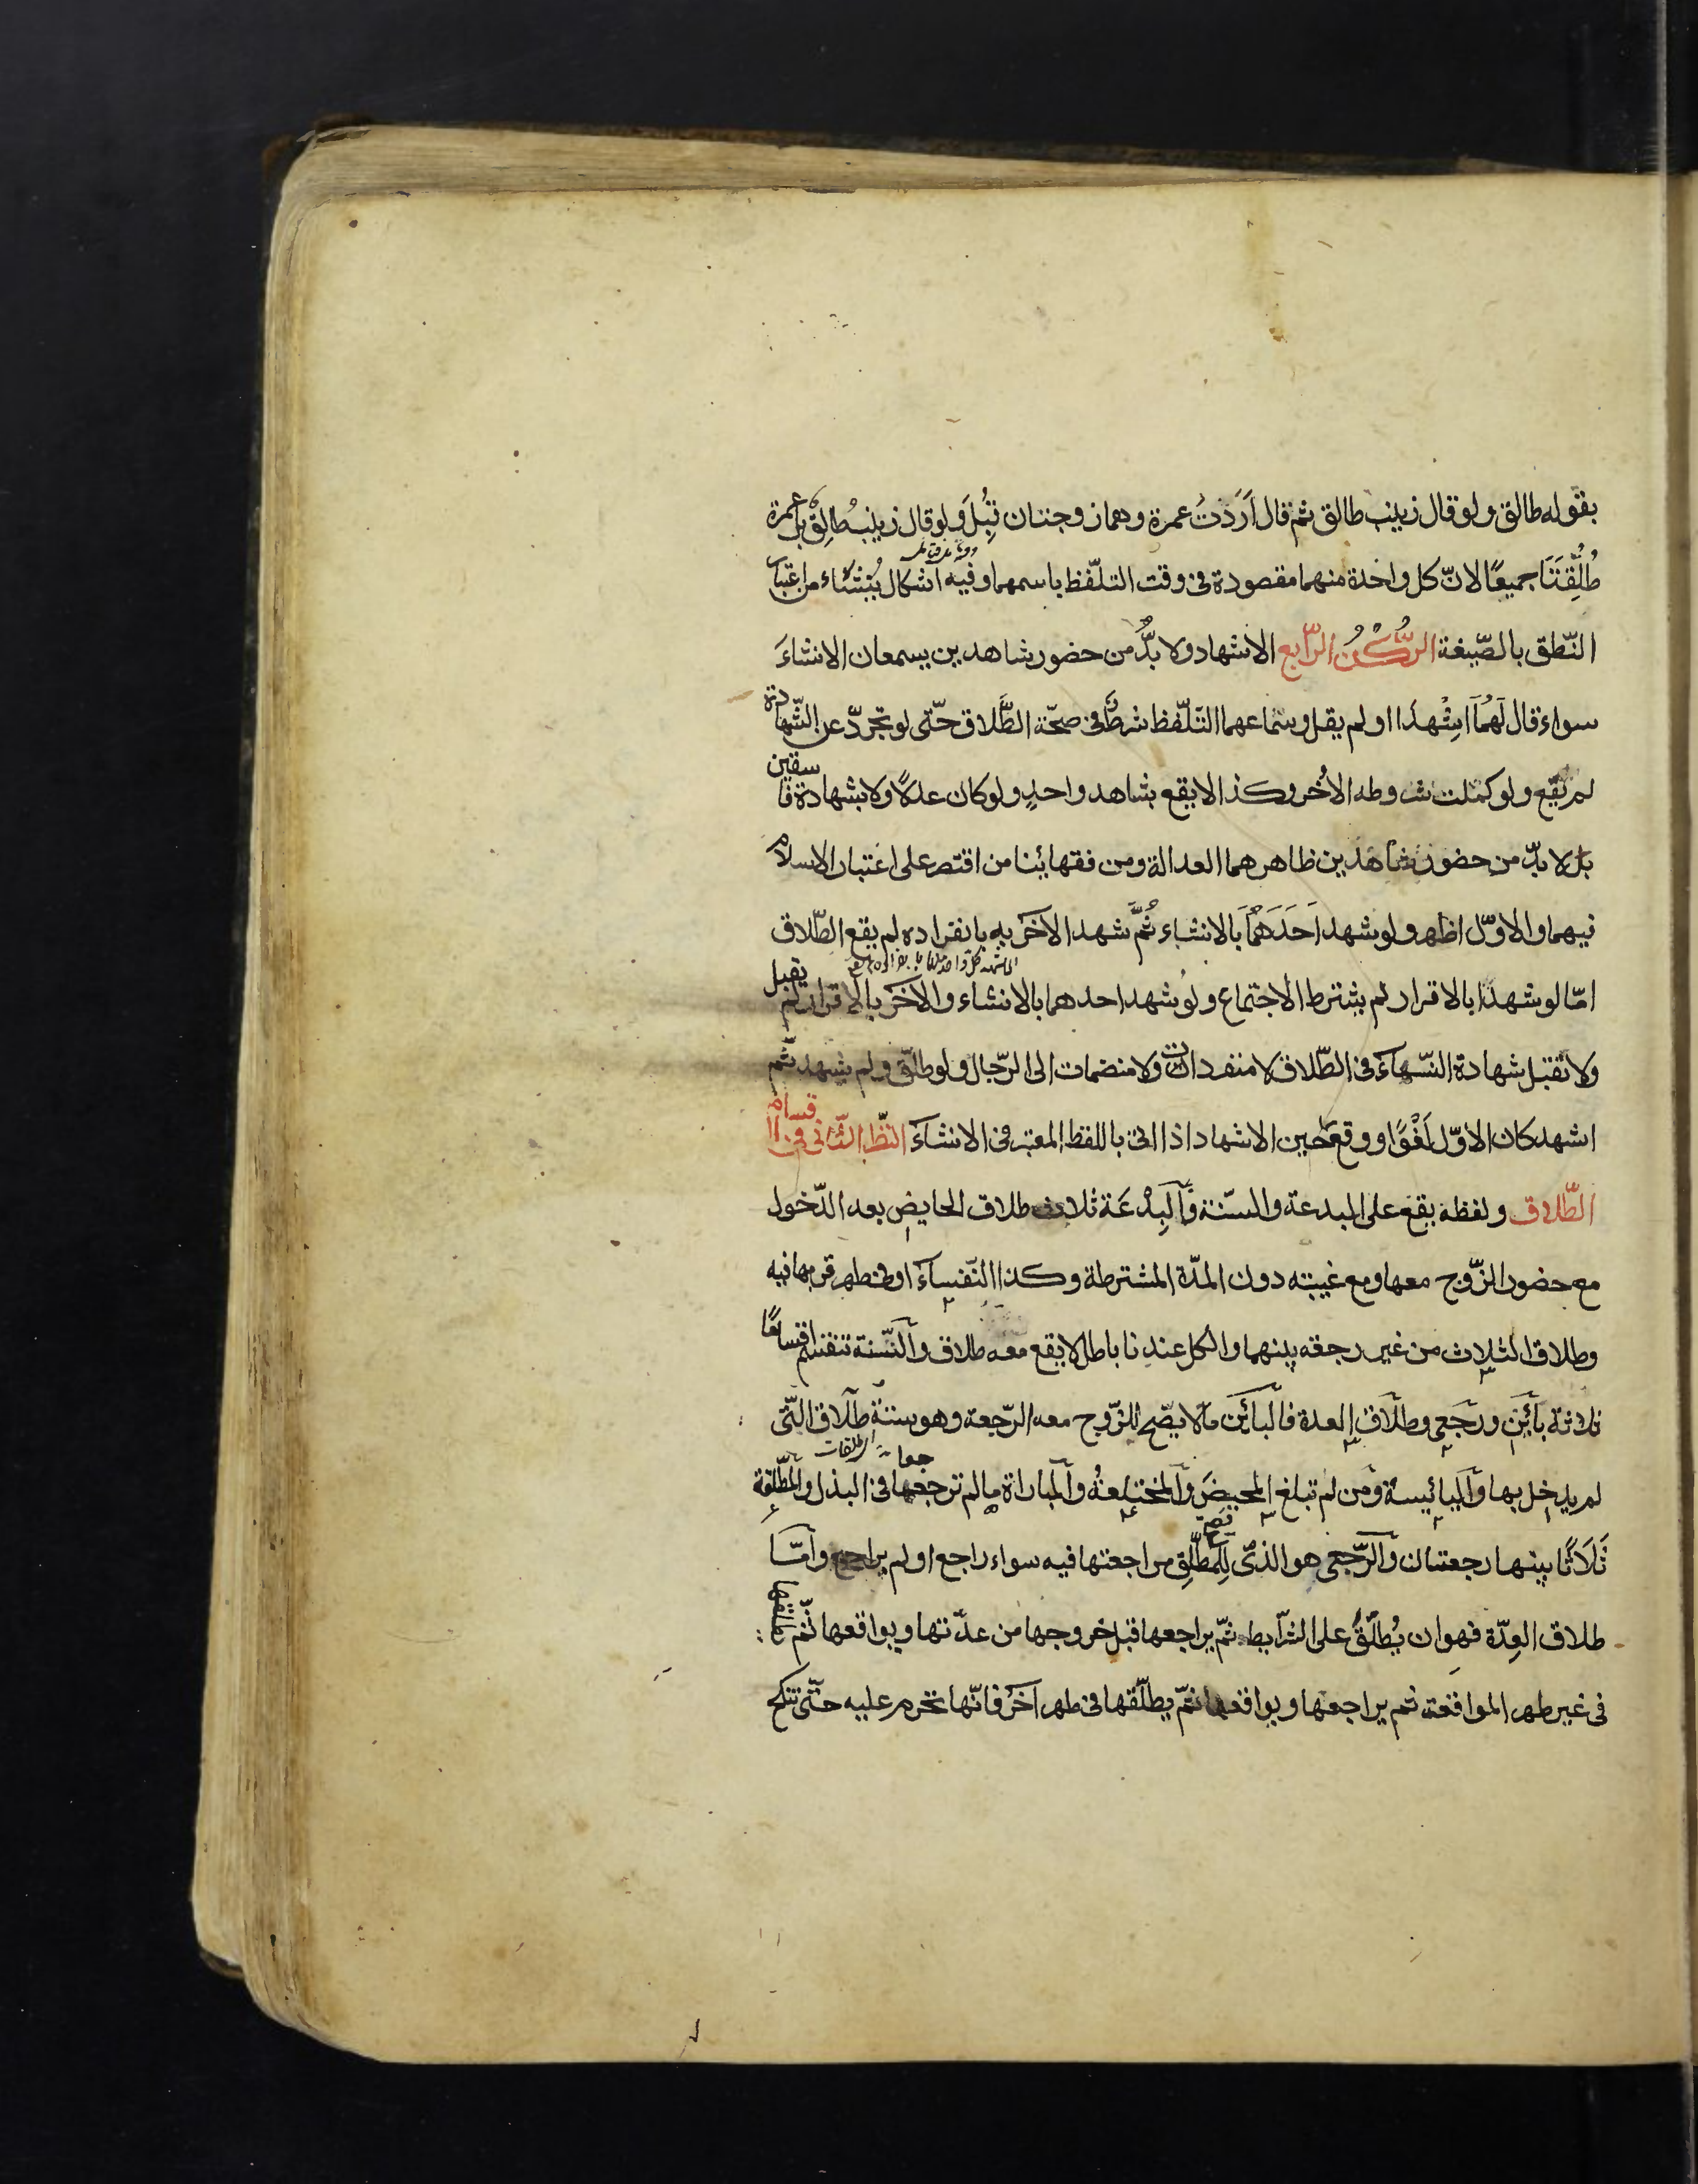 بقوله طالق ولو قال زينب طالق ثم قال اَرَدْتُ عمرة وهما زوجتان قُبِلَ ولو قال زينبُ طالِقٌ بل عمرة
طُلِّقَتَا جميعًا لانّ كل واحدة منهما مقصودة فى وقت التلفّظ باسمهما وفيه اشكال يُنشَاء من اعتبار
النّطق بالصّيغة الرُّكْنُ الرّابع الاشهاد ولا بدُّ من حضور شاهدين يسمعان الانشاءَ
سواء قال لَهُمَا اشِْهدَا او لم يقل وسماعهما التلّفظ شرطٌ فى صحّة الطَّلاق حتّى لو تجردّ عن الشّهادة
لم يقع ولو كملت شروطه الأُخر وكذا لا يقع بشاهد واحدٍ ولو كان عدلاً ولا بشهادة فاسقين
بل لا بدّ من حضور شاهدين ظاهرهما العدالة ومن فقهائنا من اقتصر على اعتبار الاسلام
فيهما والاوّل اظهر ولو شهد اَحَدَهُمَا بالانشاء ثُمَّ شهد الآخر به بانفراده لم يقع الطّلاق
امّا لو شهدا بالاقرار لم يشترط الاجتماع ولو شهد احدهما بالانشاء والآخر بالاقرار لم يقبل
ولا تقبل شهادة النّساءَ فى الطّلاق لا منفردات ولا منضمات الى الرّجال ولو طلّق ولم يشهد ثّم
اشهد كان الاوّل لَغْوًا ووقع حين الاشهاد اذا اتى باللفظ المعتبر فى الانشاءَ النّظر الثّانى فى اقسام
الطّلاق ولفظه يقع على البدعة والسنّة فَالبِدْعَة ثلاث طلاق الحايض بعد الدّخول
مع حضور الزّوج معها ومع غيبته دون المدّة المشترطة وكذا النّفساءَ او فى طهر قربها فيه
وطلاق الثلاث من غير رجعة بينهما والكل عندنا باطل لا يقع معه طلاق والسّنة تنقسم اقسامًا
ثلاثة بائن ورجعى وطلاق العدة فالبائن ما لا يصّح للزّوج معه الرّجعة وهو ستة طلاق الّتى
لم يدخل بها واليائيسة ومن لم تبلغ المحيضَ والمختلعةُ والمباراة ما لم ترجعها فى البذل والمطلّقة
ثَلَاثًا بينها رجعتان والرّجعى هو الذى لِلمطلّقِ مراجعتها فيه سواء راجع او لم يراجع وامّا
طلاق العِدّة فهو ان يُطلّق على الشرّايط ثمّ يراجعها قبل خروجها من عدّتها ويواقعها ثّم
فى غير طهر المواقعة ثم يراجعها ويواقعها ثمّ يطلّقها فى طهر آخر فانّها تحرم عليه حتّى تنكح